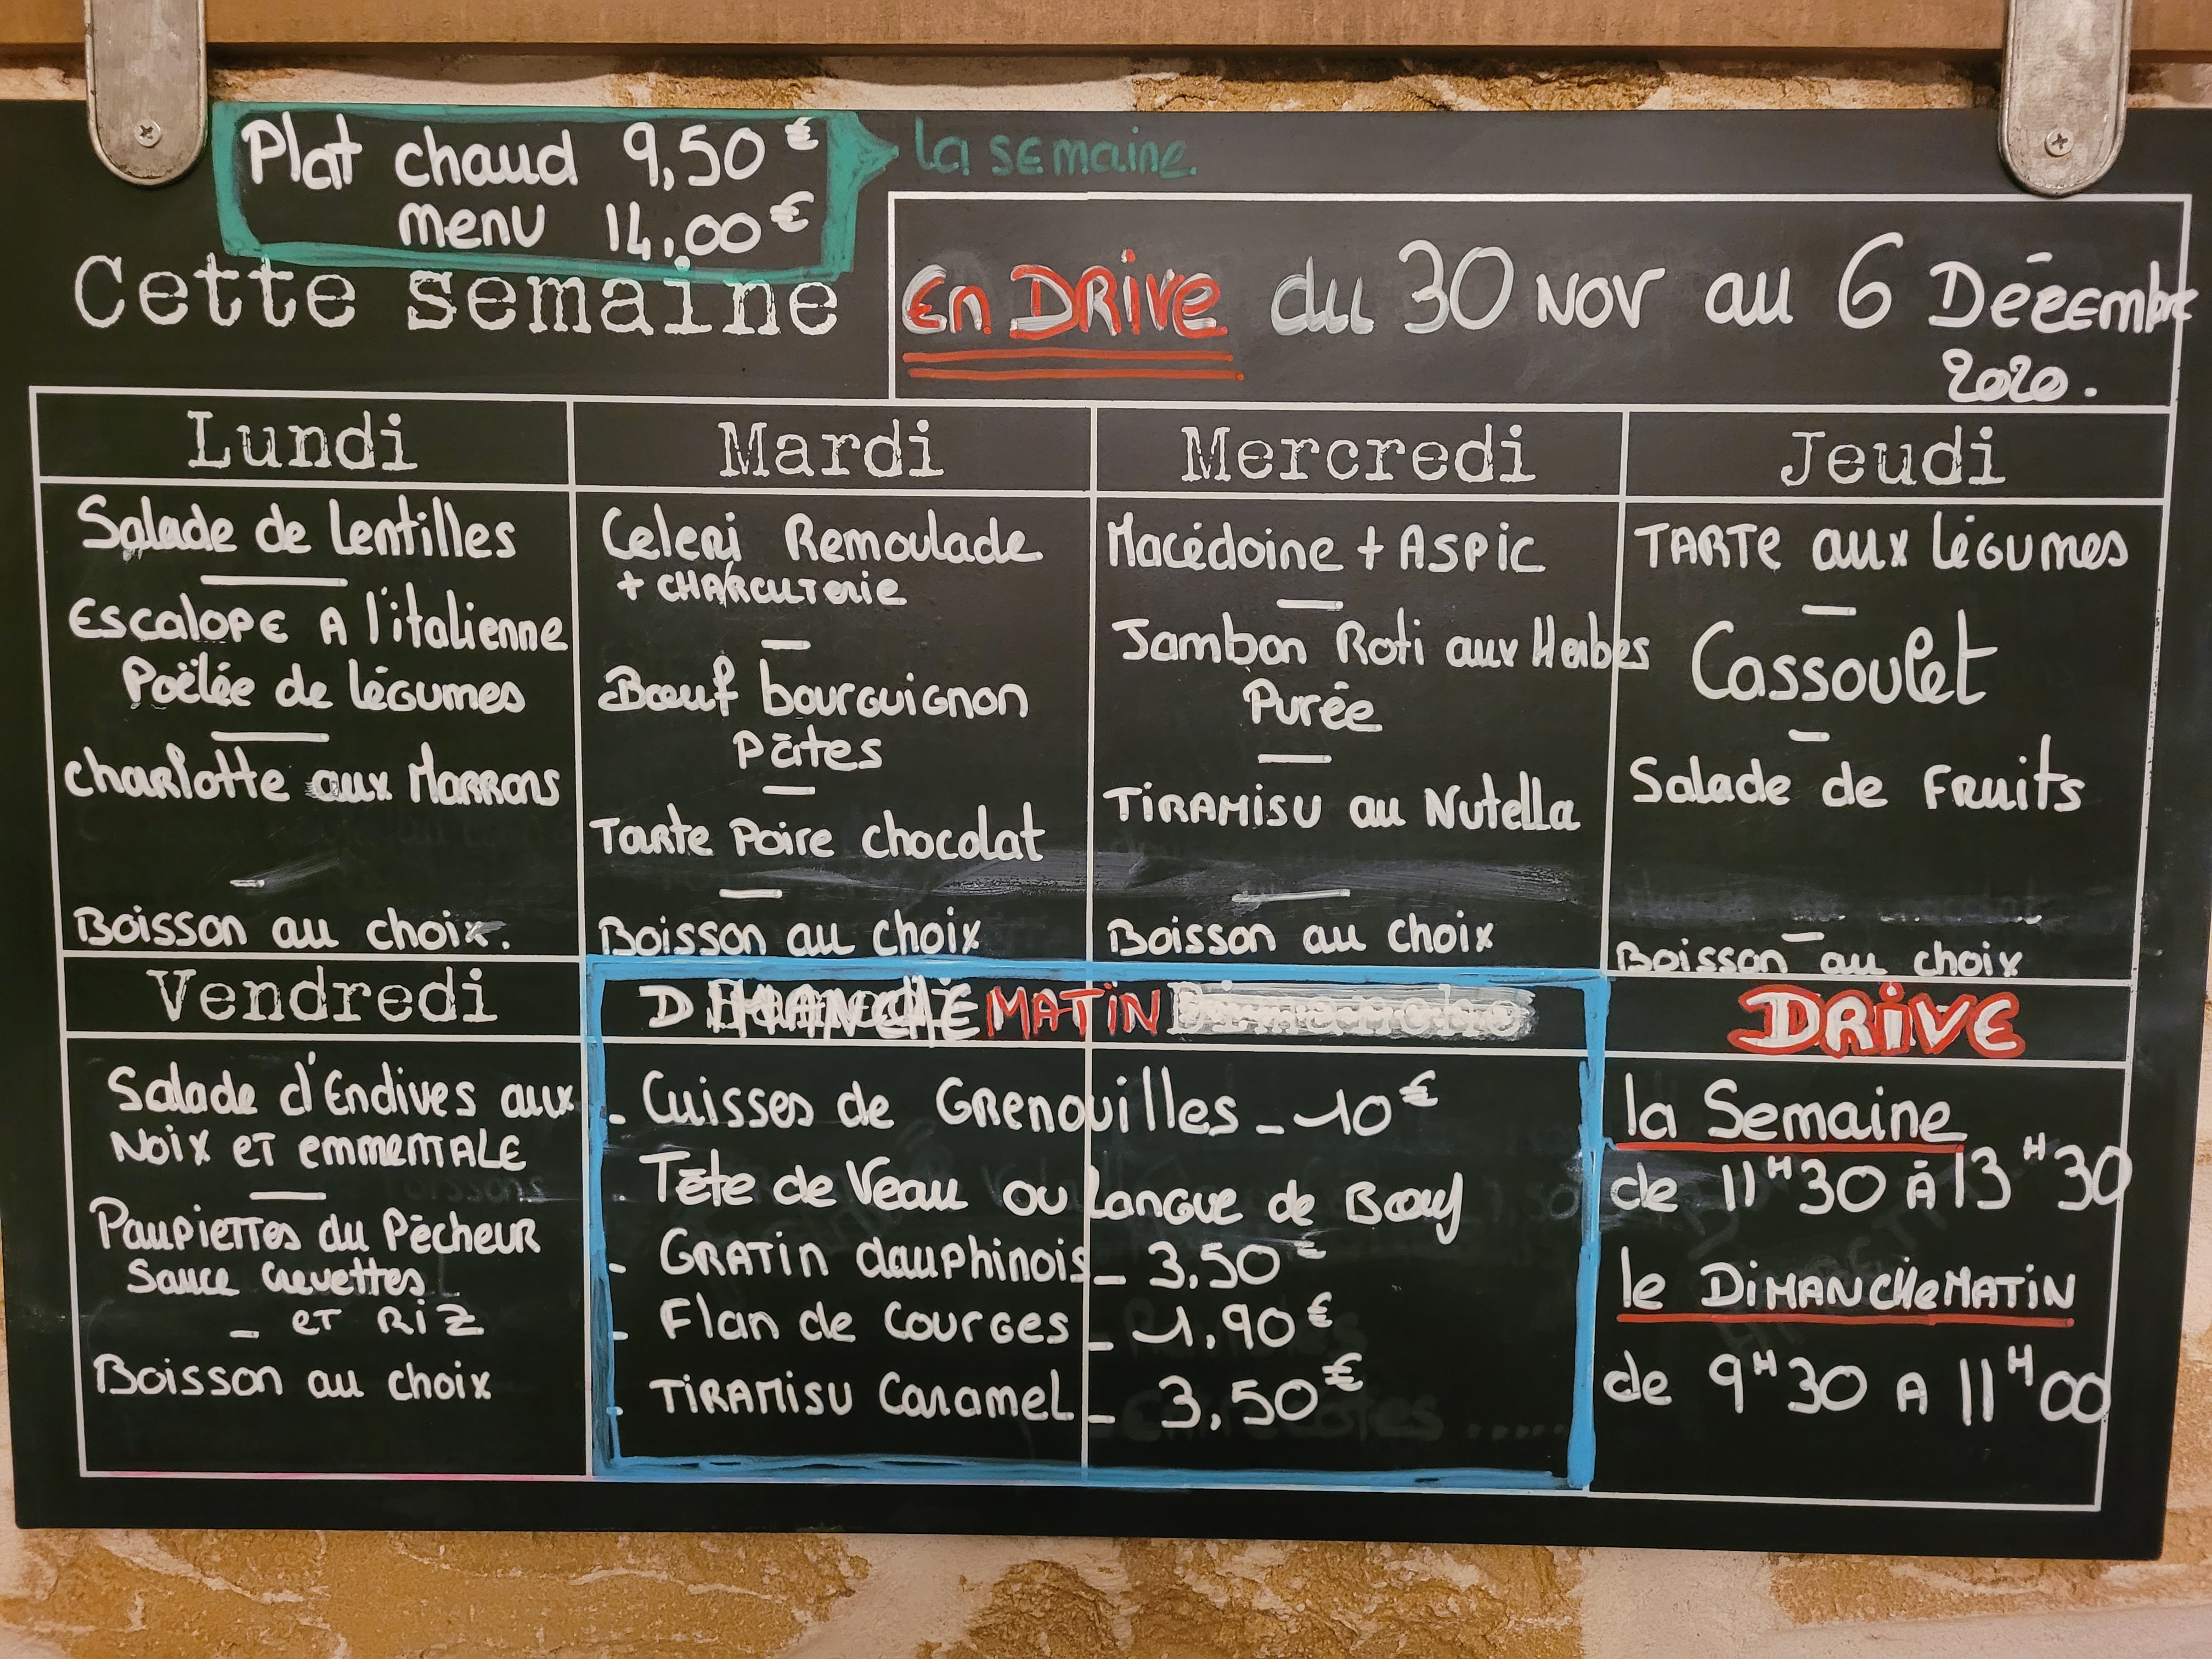 Plat chaud 9,50 €
la semaine.
menu 14,00 €
Cette semaine
En DRive du 30 NOV au 6 Décembre
2020.
Lundi
Salade de lentilles
Escalope A l'italienne
Poëlée de légumes
Charlotte aux Marrons
Boisson au choix.
Mardi
Celeri Remoulade
+ CHARCUTerie
Bœuf bourguignon
Pâtes
Tarte Poire chocolat
Boisson au choix
Mercredi
Macédoine + ASPic
Jambon Roti aux Herbes
Purée
TiRAMiSU au Nutella
Boisson au choix
Jeudi
TARTe aux légumes
Cassoulet
Salade de Fruits
Boisson au choix
Vendredi
Salade d'Endives aux
Noix et emmenTALE
Paupiettes du Pêcheur
Sauce Crevettes
et Riz
Boisson au choix
DIMANCHE MATiN
- Cuisses de Grenouilles - 10 €
Tête de Veau ou Langue de Bœuf
- GRATin dauphinois - 3.50 €
- Flan de Courges - 1.90 €
- TiRAMiSU Caramel - 3,50 €
DRiVE
la Semaine
de 11H30 À 13H30
le DiMANCHe MATiN
de 9H30 A 11H00